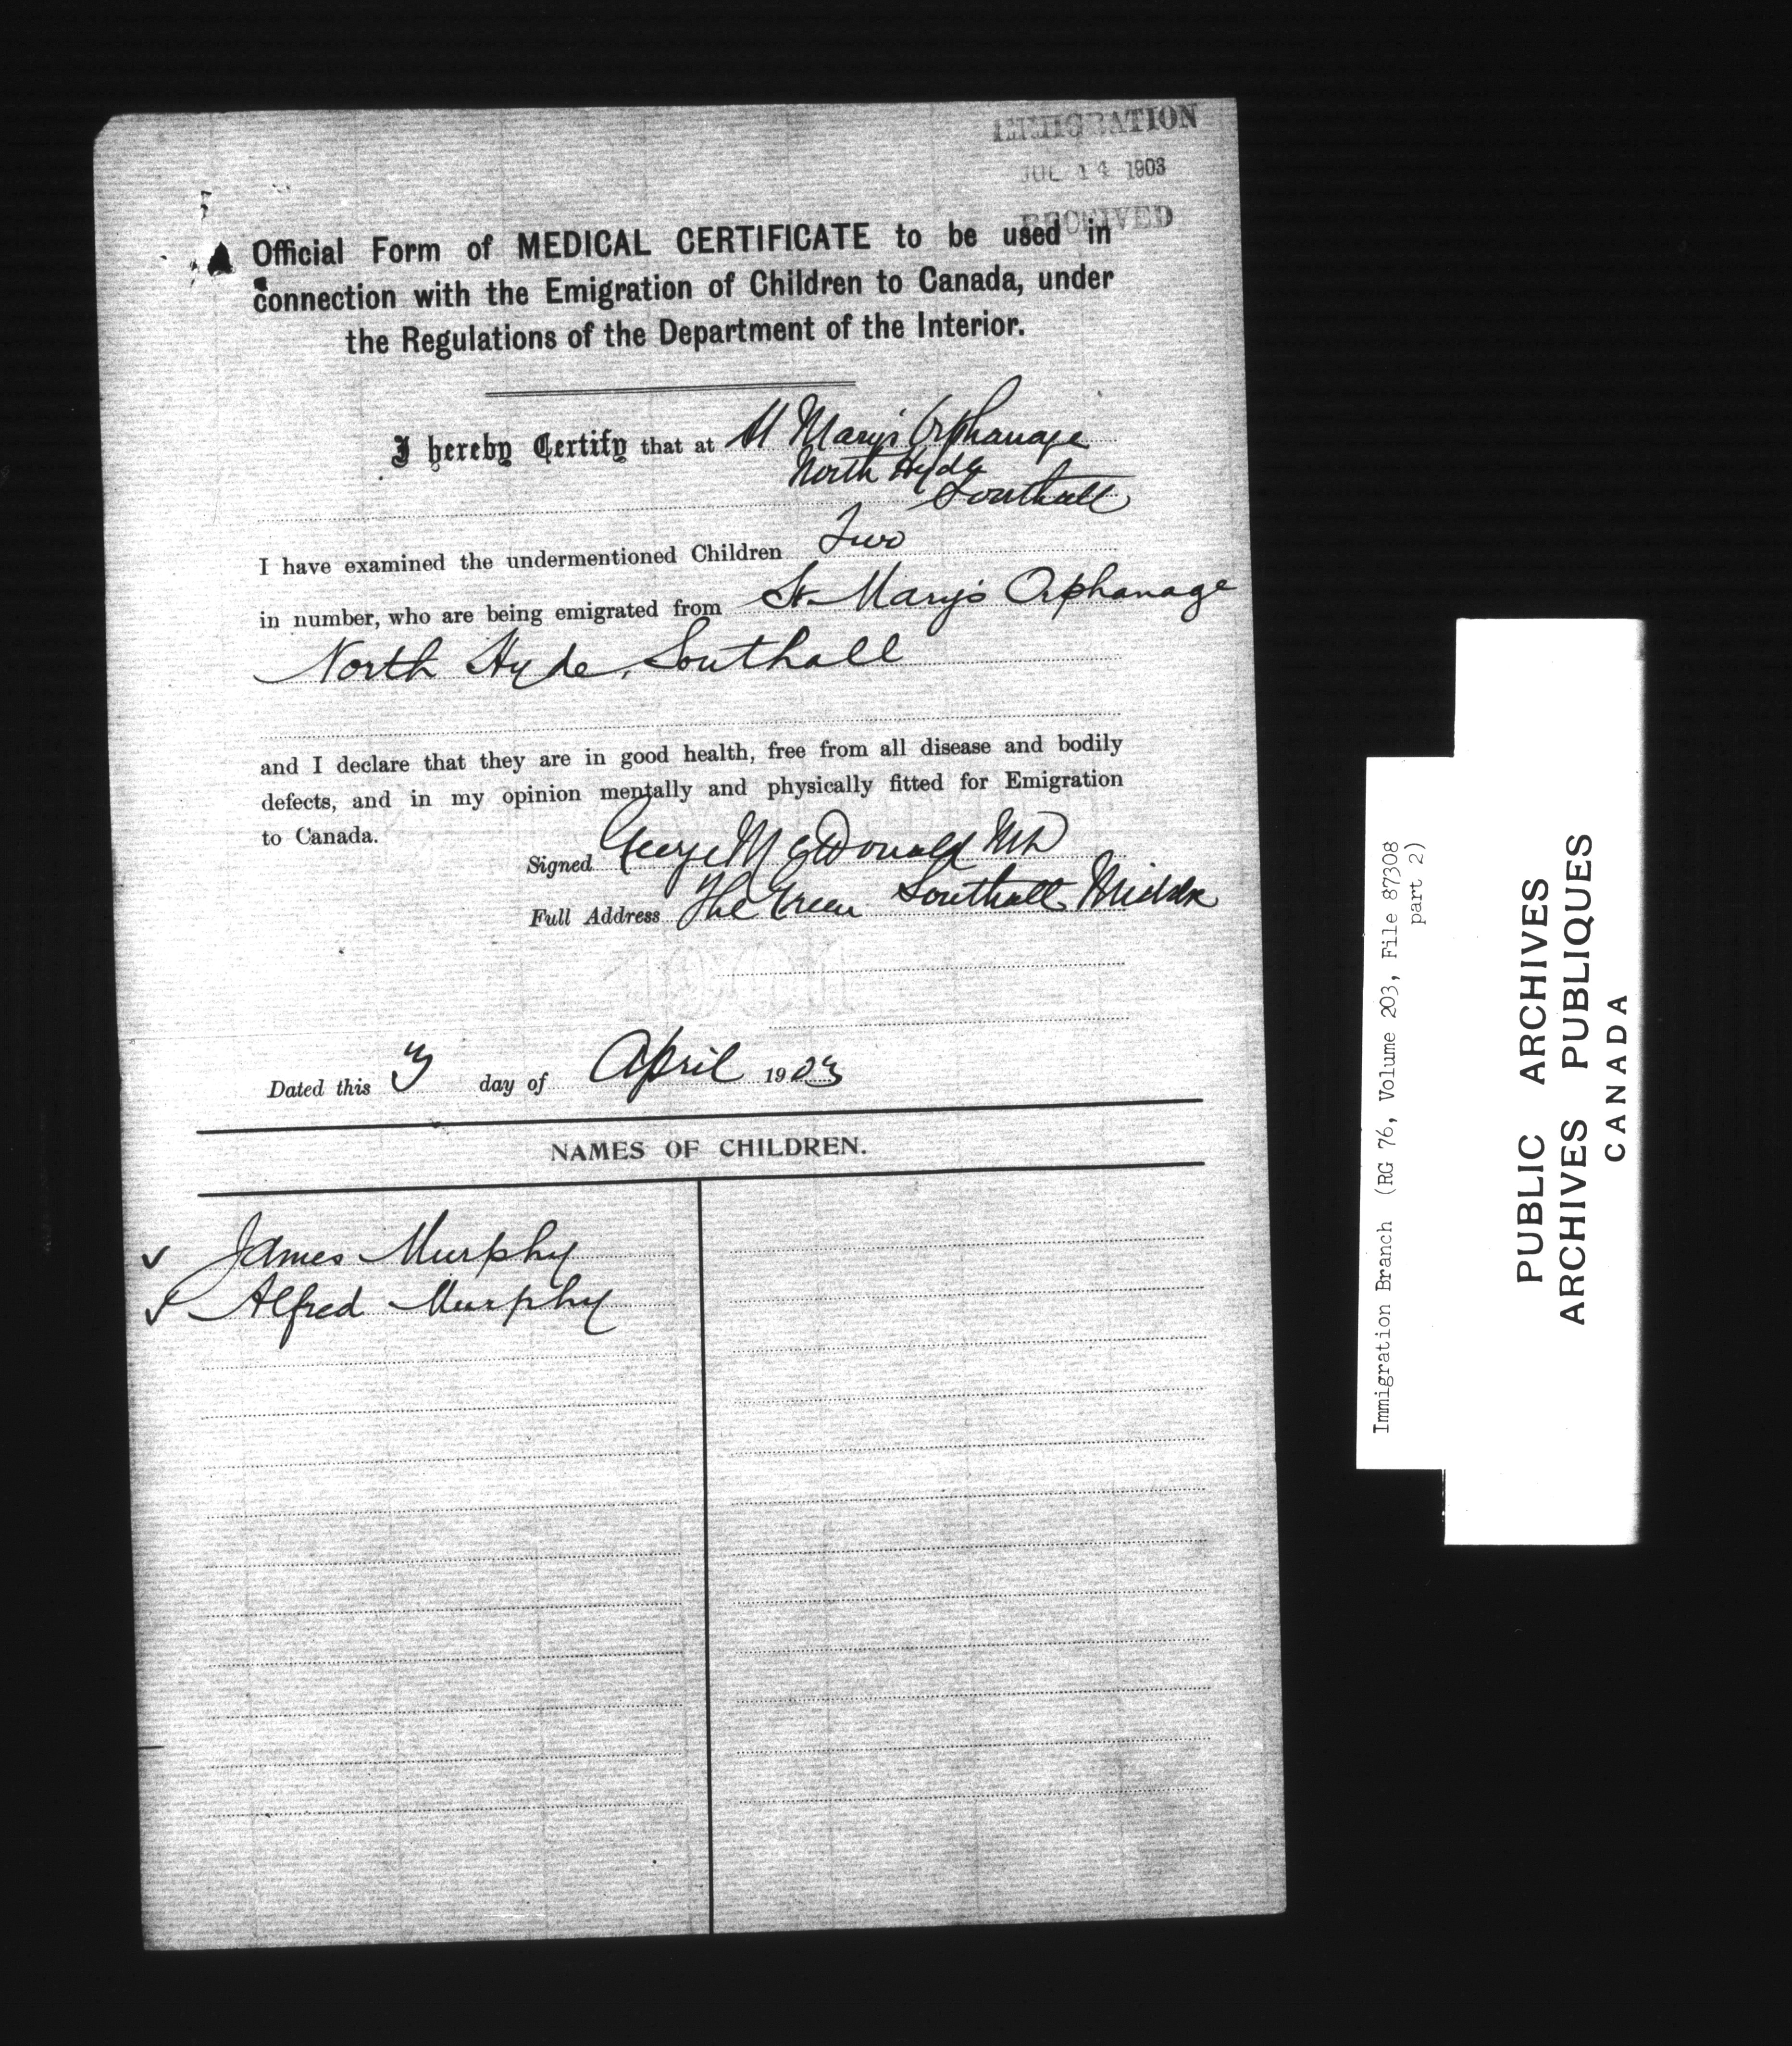 IMMIGRATION
JUL 14 1903
RECEIVED
Official Form of MEDICAL CERTIFICATE to be used in
connection with the Emigration of Children to Canada, under
the Regulations of the Department of the Interior.
I hereby Certify that at St Mary's Orphanage
North Hyde
Southall
I have examined the undermentioned Children Two
in number, who are being emigrated from St. Mary's Orphanage
North Hyde, Southall
and I declare that they are in good health, free from all disease and bodily
defects, and in my opinion mentally and physically fitted for Emigration
to Canada.
Signed George McDonald MD
Full Address The Green Southall Middx
1901
Dated this 3 day of April 1903
NAMES OF CHILDREN.
✓ James Murphy
✓ Alfred Murphy
Immigration Branch (RG 76, Volume 203, File 87308
part 2)
PUBLIC ARCHIVES
ARCHIVES PUBLIQUES
CANADA